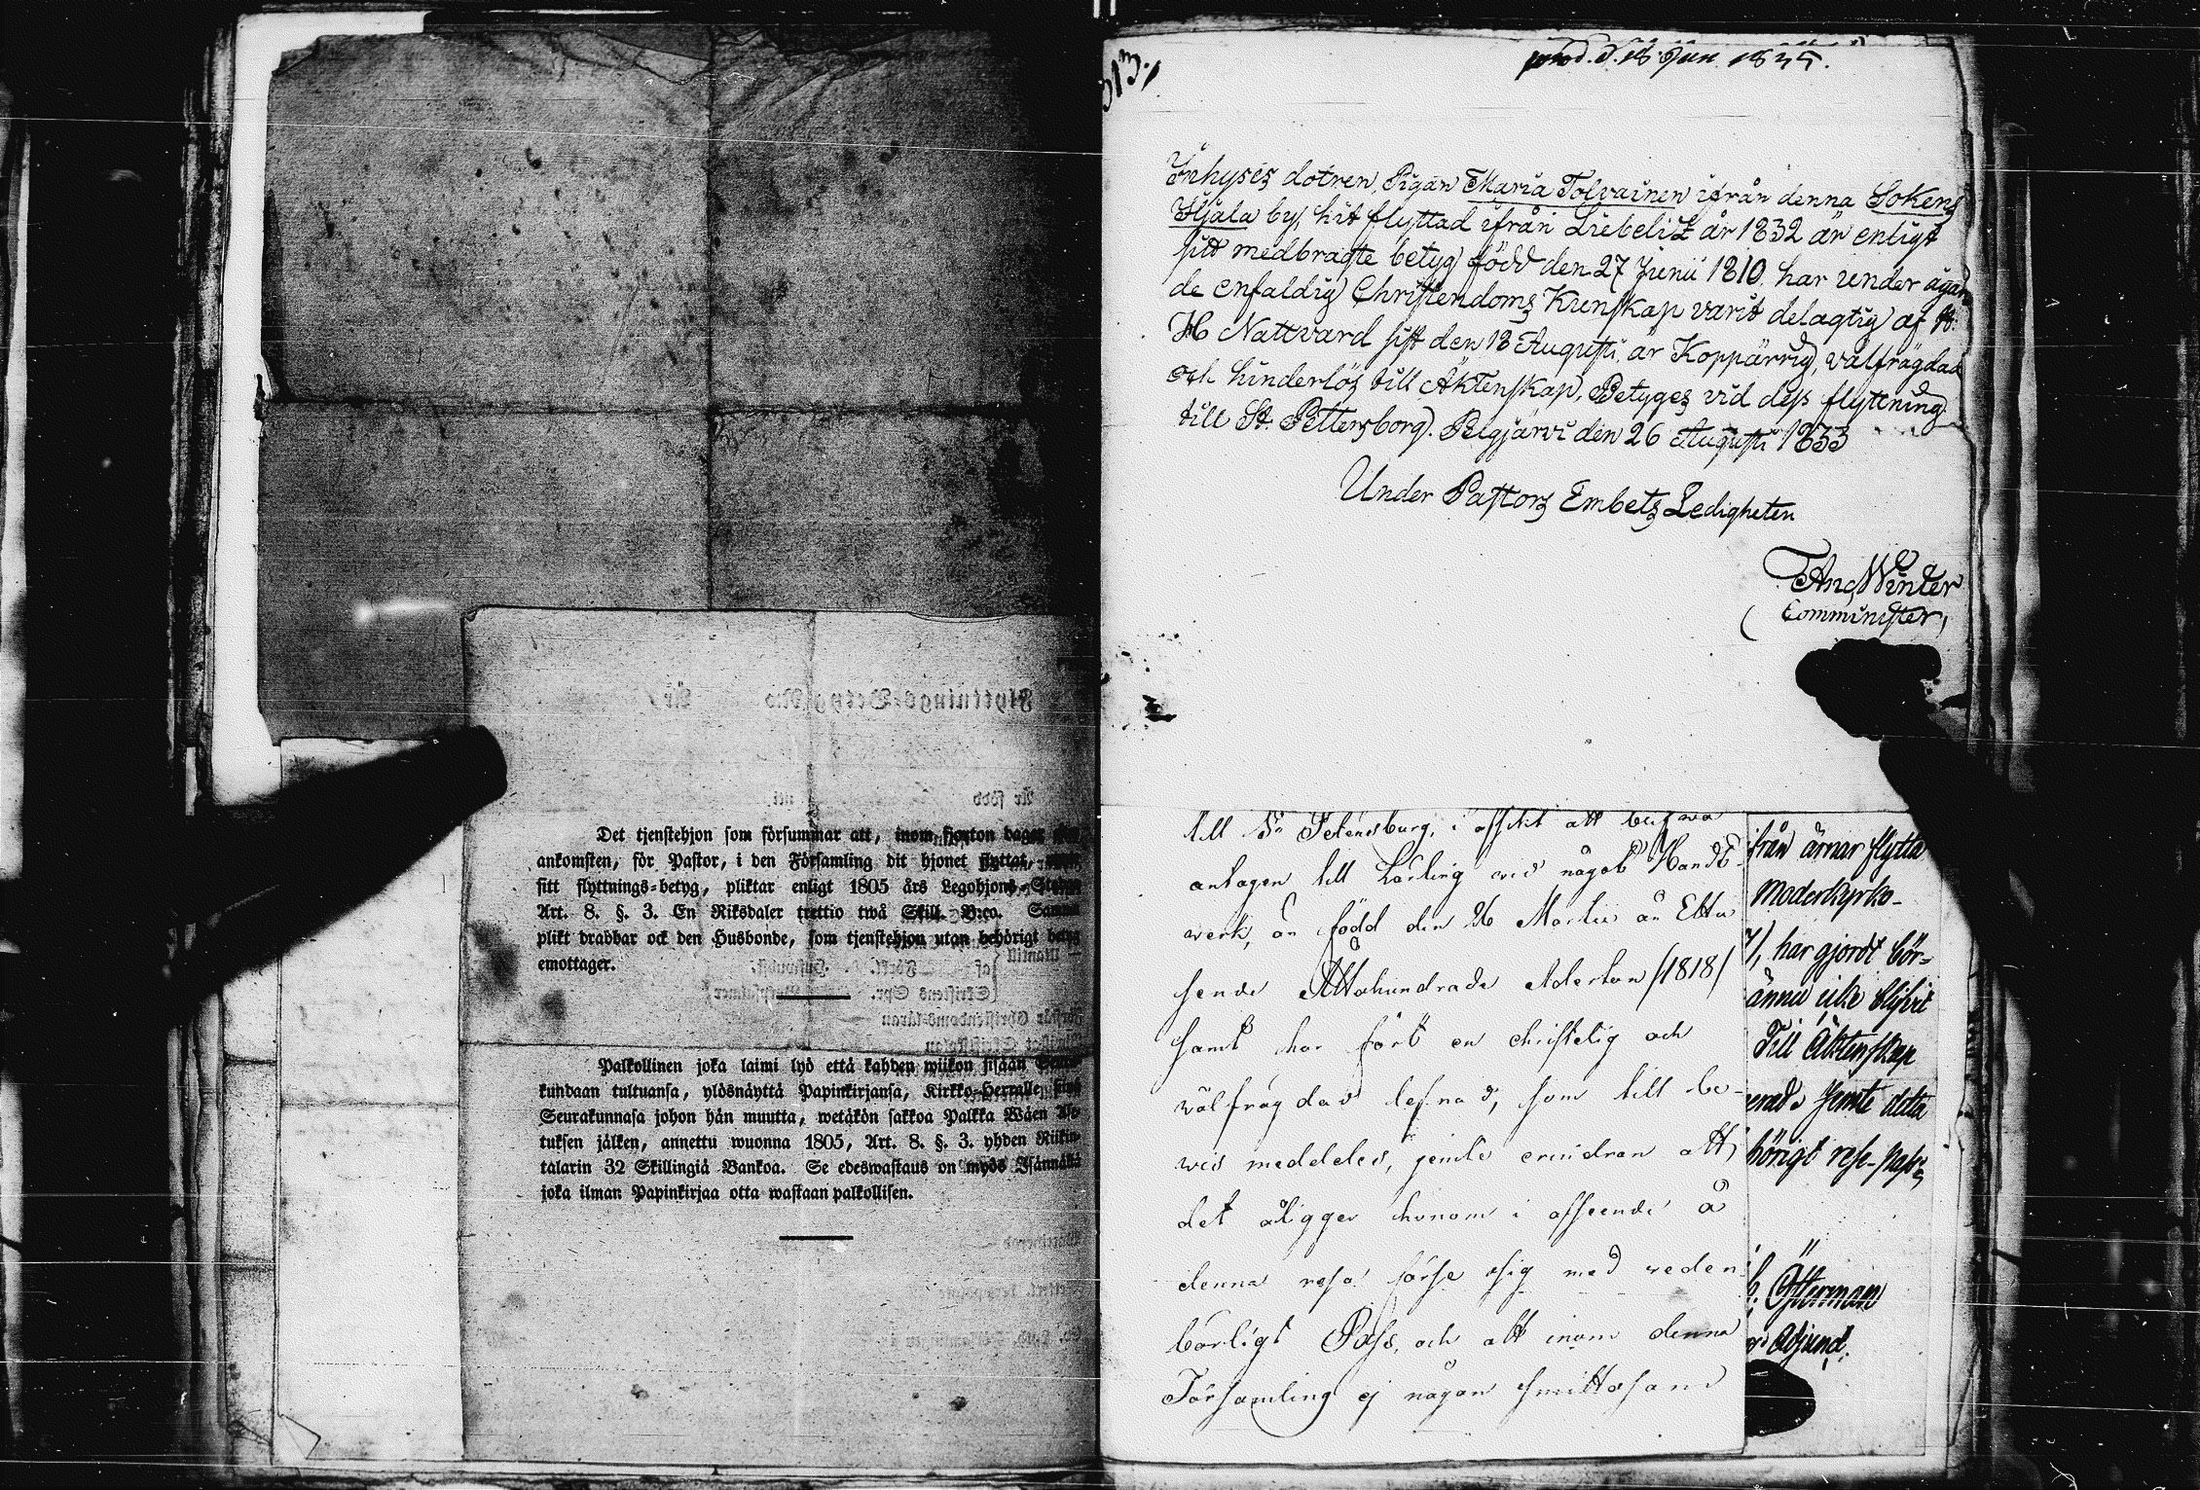 Det tjenstehjon som försummar att, inom fjorton dagar
ankomsten, för Pastor, i den Församling dit hjonet flyttat,
sitt flyttnings-betyg, pliktar enligt 1805 års Legohjons-Stadga
Art. 8. §. 3. En Riksdaler trettio twå Skill. B:co. Samma
plikt drabbar ock den Husbonde, som tjenstehjon utan behörigt betyg
emottager.
Palkollinen joka laimi lyö että kahden wiikon sisään
kundaan tultuansa, ylösnäyttä Papinkirjansa, Kirkko-Herralle,
Seurakunnasa johon hän muutta, wetäkön sakkoa Palkka Wäen
tuksen jälken, annettu wuonna 1805, Art. 8. §. 3. yhden Riikin-
talarin 32 Skillingiä Bankoa. Se edeswastaus on myös Isännällä
joka ilman Papinkirjaa otta wastaan palkollisen.
313.
d. 18 Jun 1835.
Inhyses dotren, Pigan Maria Tolvainen ifrån denna Sokens
by, hit flyttad ifrån Liebelitz år 1832 är enligt
sitt medbragte betyg född den 27 Junii 1810. har under ägan
de enfaldig Christendoms Kunskap varit delagtig af
H Nattvard sist den 18 Augusti, är Koppärrig, välfrägdad
och hinderlös till Äktenskap, Betyges vid dess flyttning
till St. Pettersborg. Pelgjärvi den 26 Augusti 1833
Under Pastors Embets Ledigheten
And Winter
Comminister,
till St Petersburg, i afsikt att blifva
antagen till Lärling vid något Handt-
werk, är född den 26 Martii år Ettu
sende Åttahundrade Aderton /1818/
samt har fört en christelig och
välfrägdad lefnad, som till be-
vis meddeles, jemte erindran att
det åligger honom i afseende å
denna resa förse sig med veden-
börligt Pass, och att inom denna
Församling ej någon smittosam
från ärnar flytta
Moderkyrko-
7/, har gjordt bör-
ännu icke blifvit
Till Äktenskap
jemte detta
hörigt rese-pass
Österman
Adjunct.